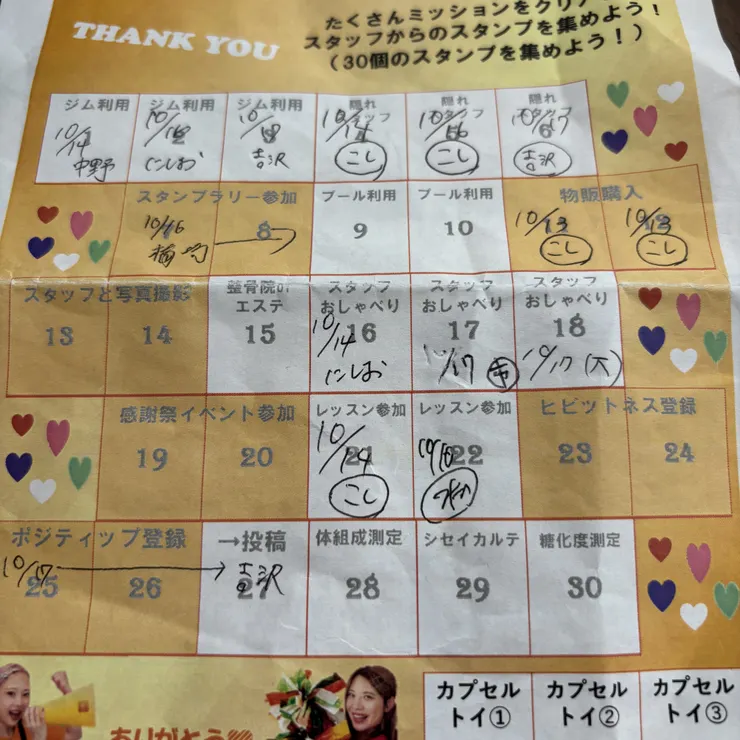 THANK YOU
たくさんミッションをクリア
スタッフからのスタンプを集めよう！
（30個のスタンプを集めよう！）
ジム利用 ジム利用 ジム利用 隠れスタッフ 隠れスタッフ 隠れスタッフ
10/14 10/ 10/ 10/14 10/16 10/17
中野 にしお 吉沢 こし こし 吉沢
スタンプラリー参加 プール利用 プール利用 物販購入
10/16 8 9 10 10/13 10/13
こし こし
スタッフと写真撮影 整骨院or エステ スタッフ おしゃべり スタッフ おしゃべり スタッフ おしゃべり
13 14 15 16 17 18
10/14 10/17 10/17
にしお
感謝祭イベント参加 レッスン参加 レッスン参加 ヒビットネス登録
19 20 21 22 23 24
10/14
こし
ポジティップ登録 →投稿 体組成測定 シセイカルテ 糖化度測定
10/17 吉沢
25 26 27 28 29 30
ありがとう
カプセル カプセル カプセル
トイ① トイ② トイ③